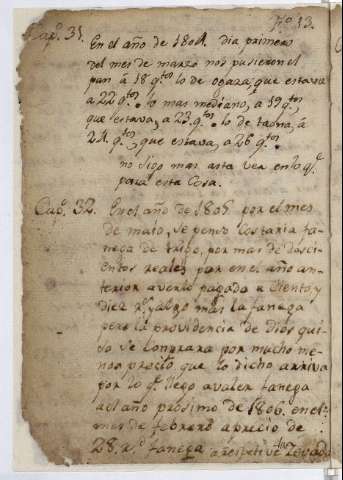 Nº 13.
Capº. 31.
En el año de 1804. dia primero
del mes de marzo nos pusieron el
pan á 18 qtos lo de ogaza, que estava
a 22 qtos. lo mas mediano, á 19 qtos,
que estava, a 23 qtos. lo de taona, á
24 qtos, que estava, a 26 qtos.
no digo mas asta ver en lo qe
para esta Cosa.
Capº. 32. En el año de 1805 por el mes
de maio, se penso Costaria fa-
nega de trigo, por mas de doscí-
entos reales, pan en el año an-
terior averlo pagado a Ciento, y
diez rs. y algo mas la fanega
pero la providencia de Dios qui-
so se Conprara por mucho me-
nos precio que lo dicho arriva
por lo qe. llego a valer fanega
al año prosimo de 1806. en el
mes de febrero a precio de
28. rs. fanega